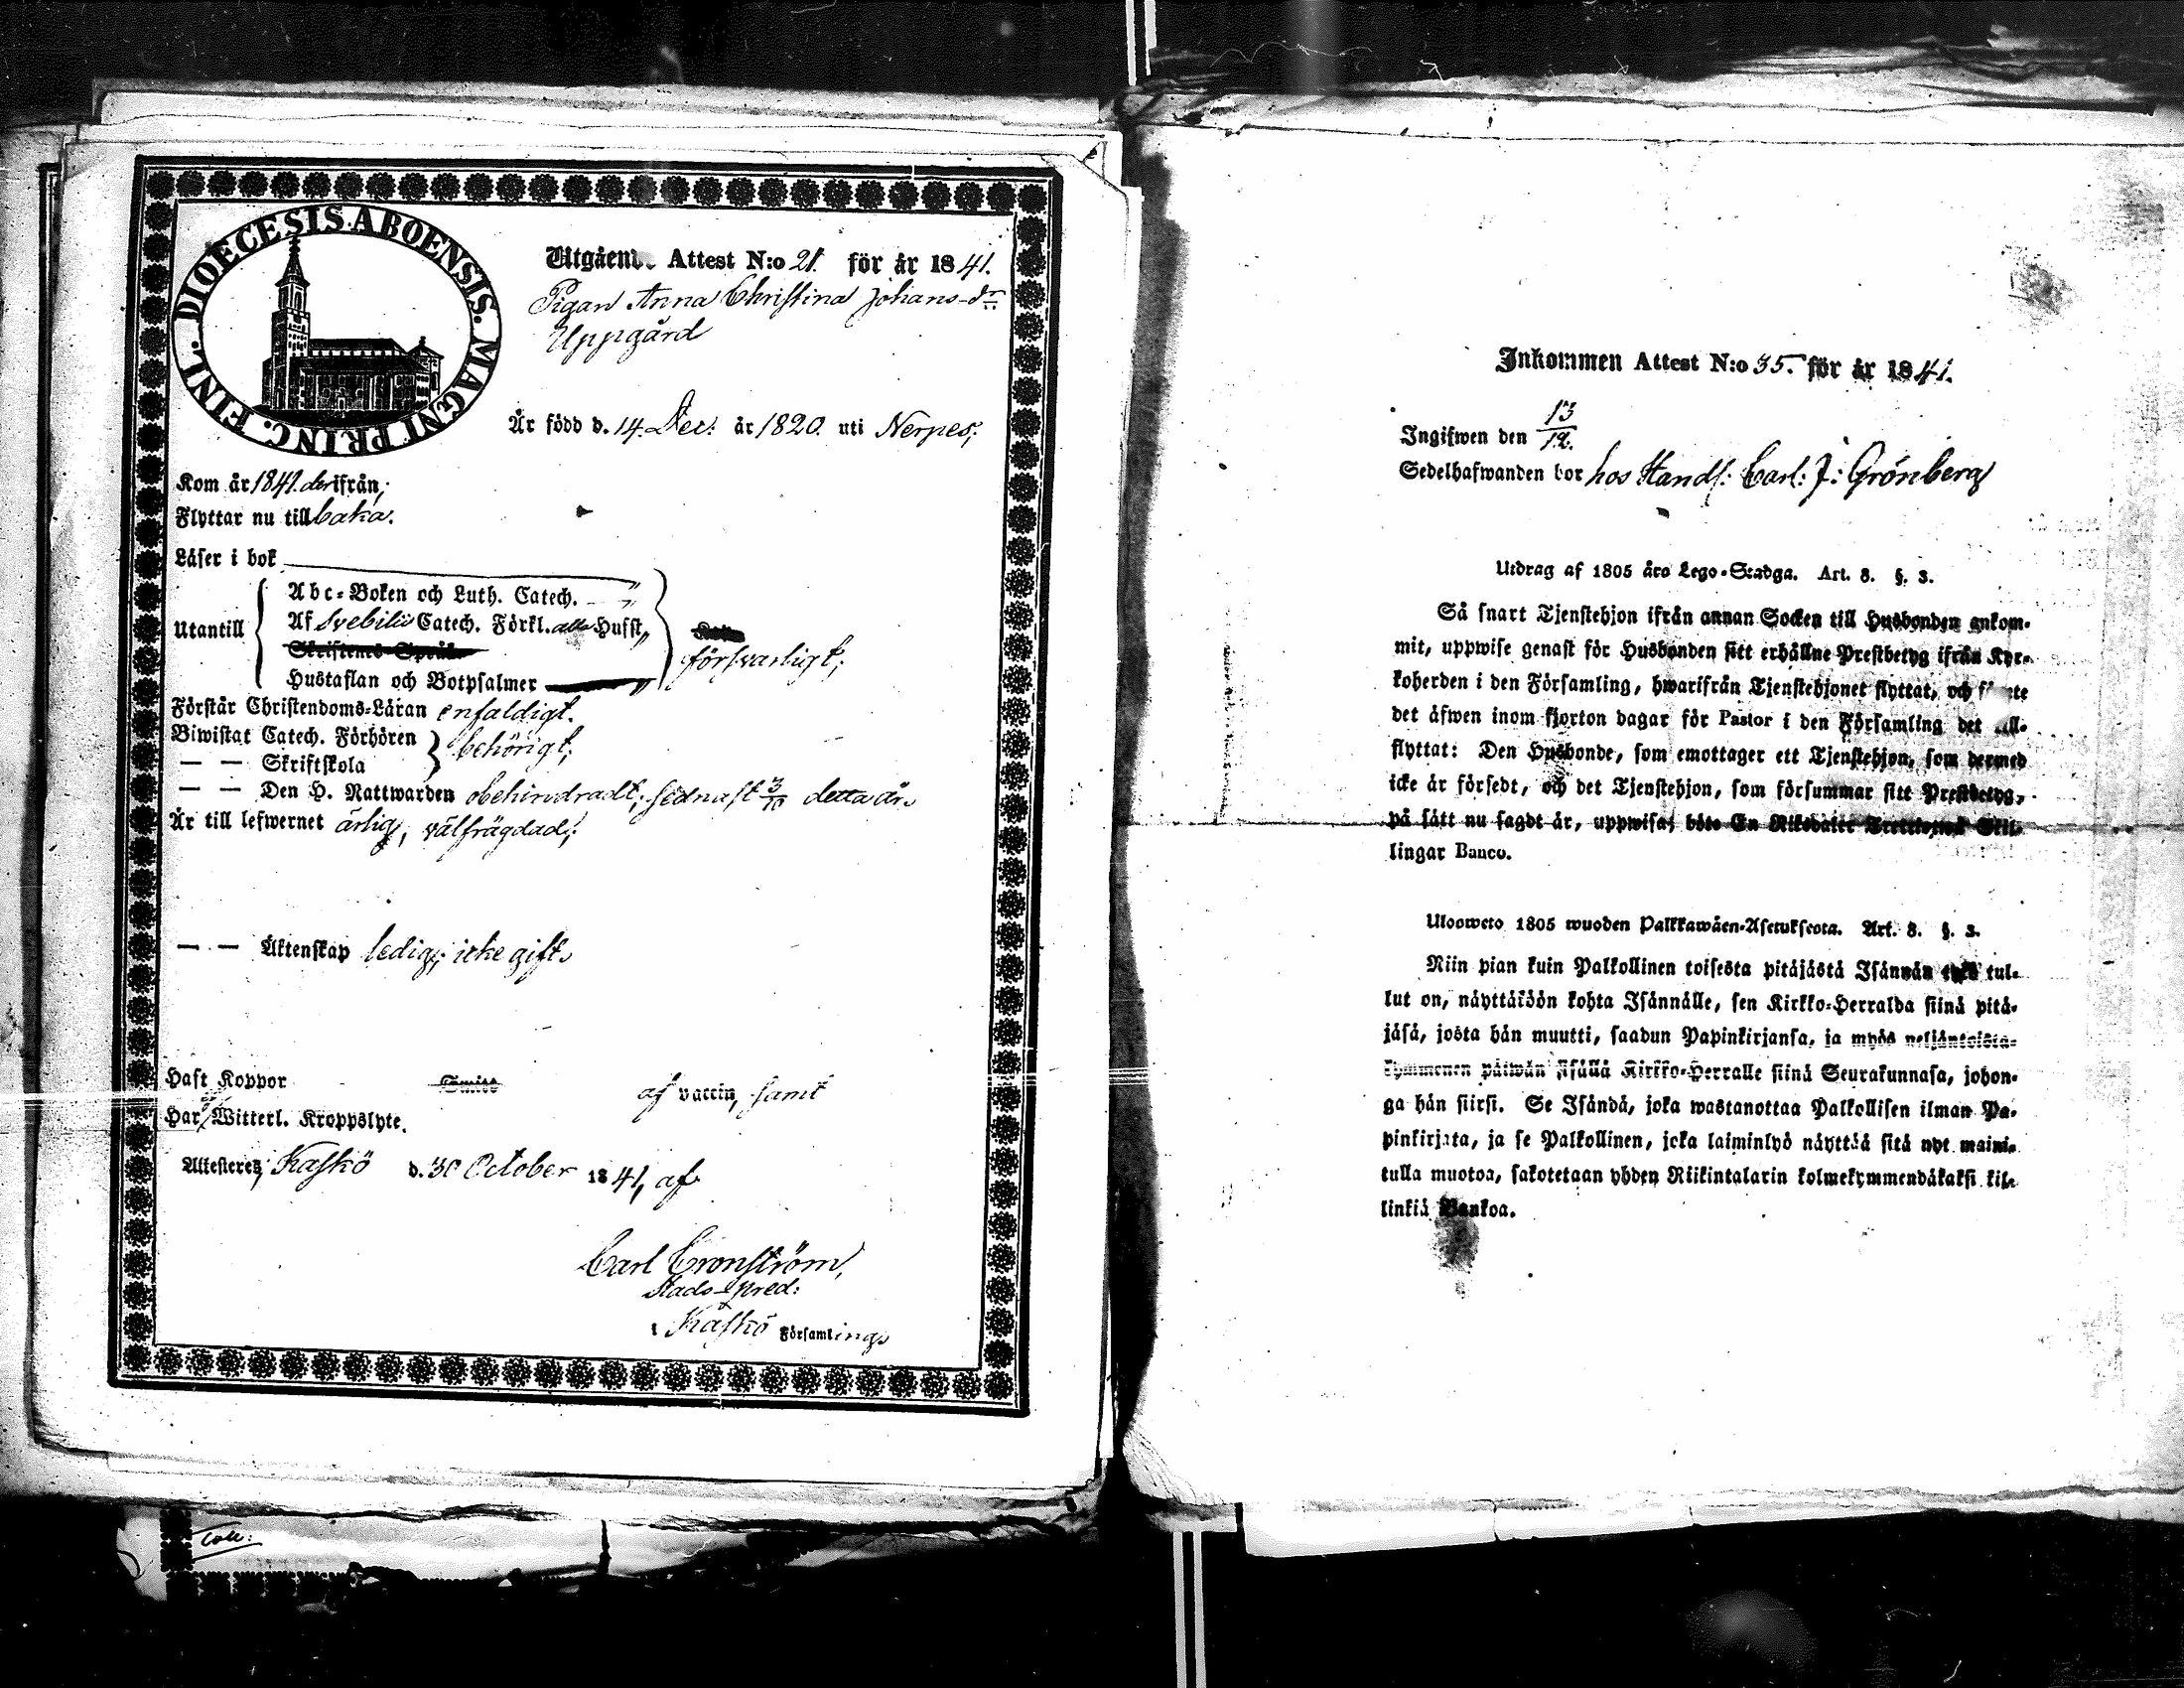 DIOECESIS ABOENSIS. MAGNI PRINC. FINL.
Utgående Attest N:o 21. för år 1841.
Pigan Anna Christina Johans-dr
Uppgård
Är född d. 14. Dec: år 1820. uti Nerpes;
Kom år 1841. derifrån;
Flyttar nu tillbaka.
Läser i bok
Utantill
Abc-Boken och Luth. Catech. "
Af Svebilii Catech. Förkl. alla Husst "
Skriftenes Språk
Hustaflan och Botpsalmer "
försvarligt;
Förstår Christendoms-Läran enfaldigt.
Biwistat Catech. Förhören
— — Skriftskola
behörigt;
— — Den H. Nattwarden obehindradt; sednast 3/10 detta år.
Är till lefwernet ärlig, välfrägdad;
— — Äktenskap ledig; icke gift.
Haft Koppor af vaccin, samt
Har ej Witterl. Kroppslyte.
Attesterer, Kaskö d. 30 October 1841, af
Carl Cronström,
Stads-Pred:
i Kaskö Församlings
Coll:
Inkommen Attest N:o 35. för år 1841.
Ingifwen den 13/12.
Sedelhafwanden bor hos Handl: Carl: J: Grönberg
Utdrag af 1805 års Lego-Stadga. Art. 8. §. 3.
Så snart Tjenstehjon ifrån annan Socken till Husbonden ankom-
mit, uppwise genast för Husbonden sitt erhållne Prestbetyg ifrån Kyr-
koherden i den Församling, hwarifrån Tjenstehjonet flyttat, och
det äfwen inom fjorton dagar för Pastor i den Församling det till-
flyttat: Den Husbonde, som emottager ett Tjenstehjon, som dermed
icke är försedt, och det Tjenstehjon, som försummar sitt Prestbetyg,
på sätt nu sagdt är, uppwisa, böte En Riksdaler Trettiotwå Skil-
lingar Banco.
Ulosweto 1805 wuoden Palkkawäen-Asetuksesta. Art. 8. §. 3.
Niin pian kuin Palkollinen toisesta pitäjästä Isännän tykö tul-
lut on, näyttäköön kohta Isännälle, sen Kirkko-Herralda siinä pitä-
jäsä, josta hän muutti, saadun Papinkirjansa, ja myös neljäntoista-
kymmenen päiwän sisällä Kirkko-Herralle siinä Seurakunnasa, johon-
ga hän siirsi. Se Isändä, joka wastanottaa Palkollisen ilman Pa-
pinkirjata, ja se Palkollinen, joka laiminlyö näyttää sitä nyt maini-
tulla muotoa, sakotetaan yhden Riikintalarin kolmekymmendäkaksi kil-
linkiä Bankoa.